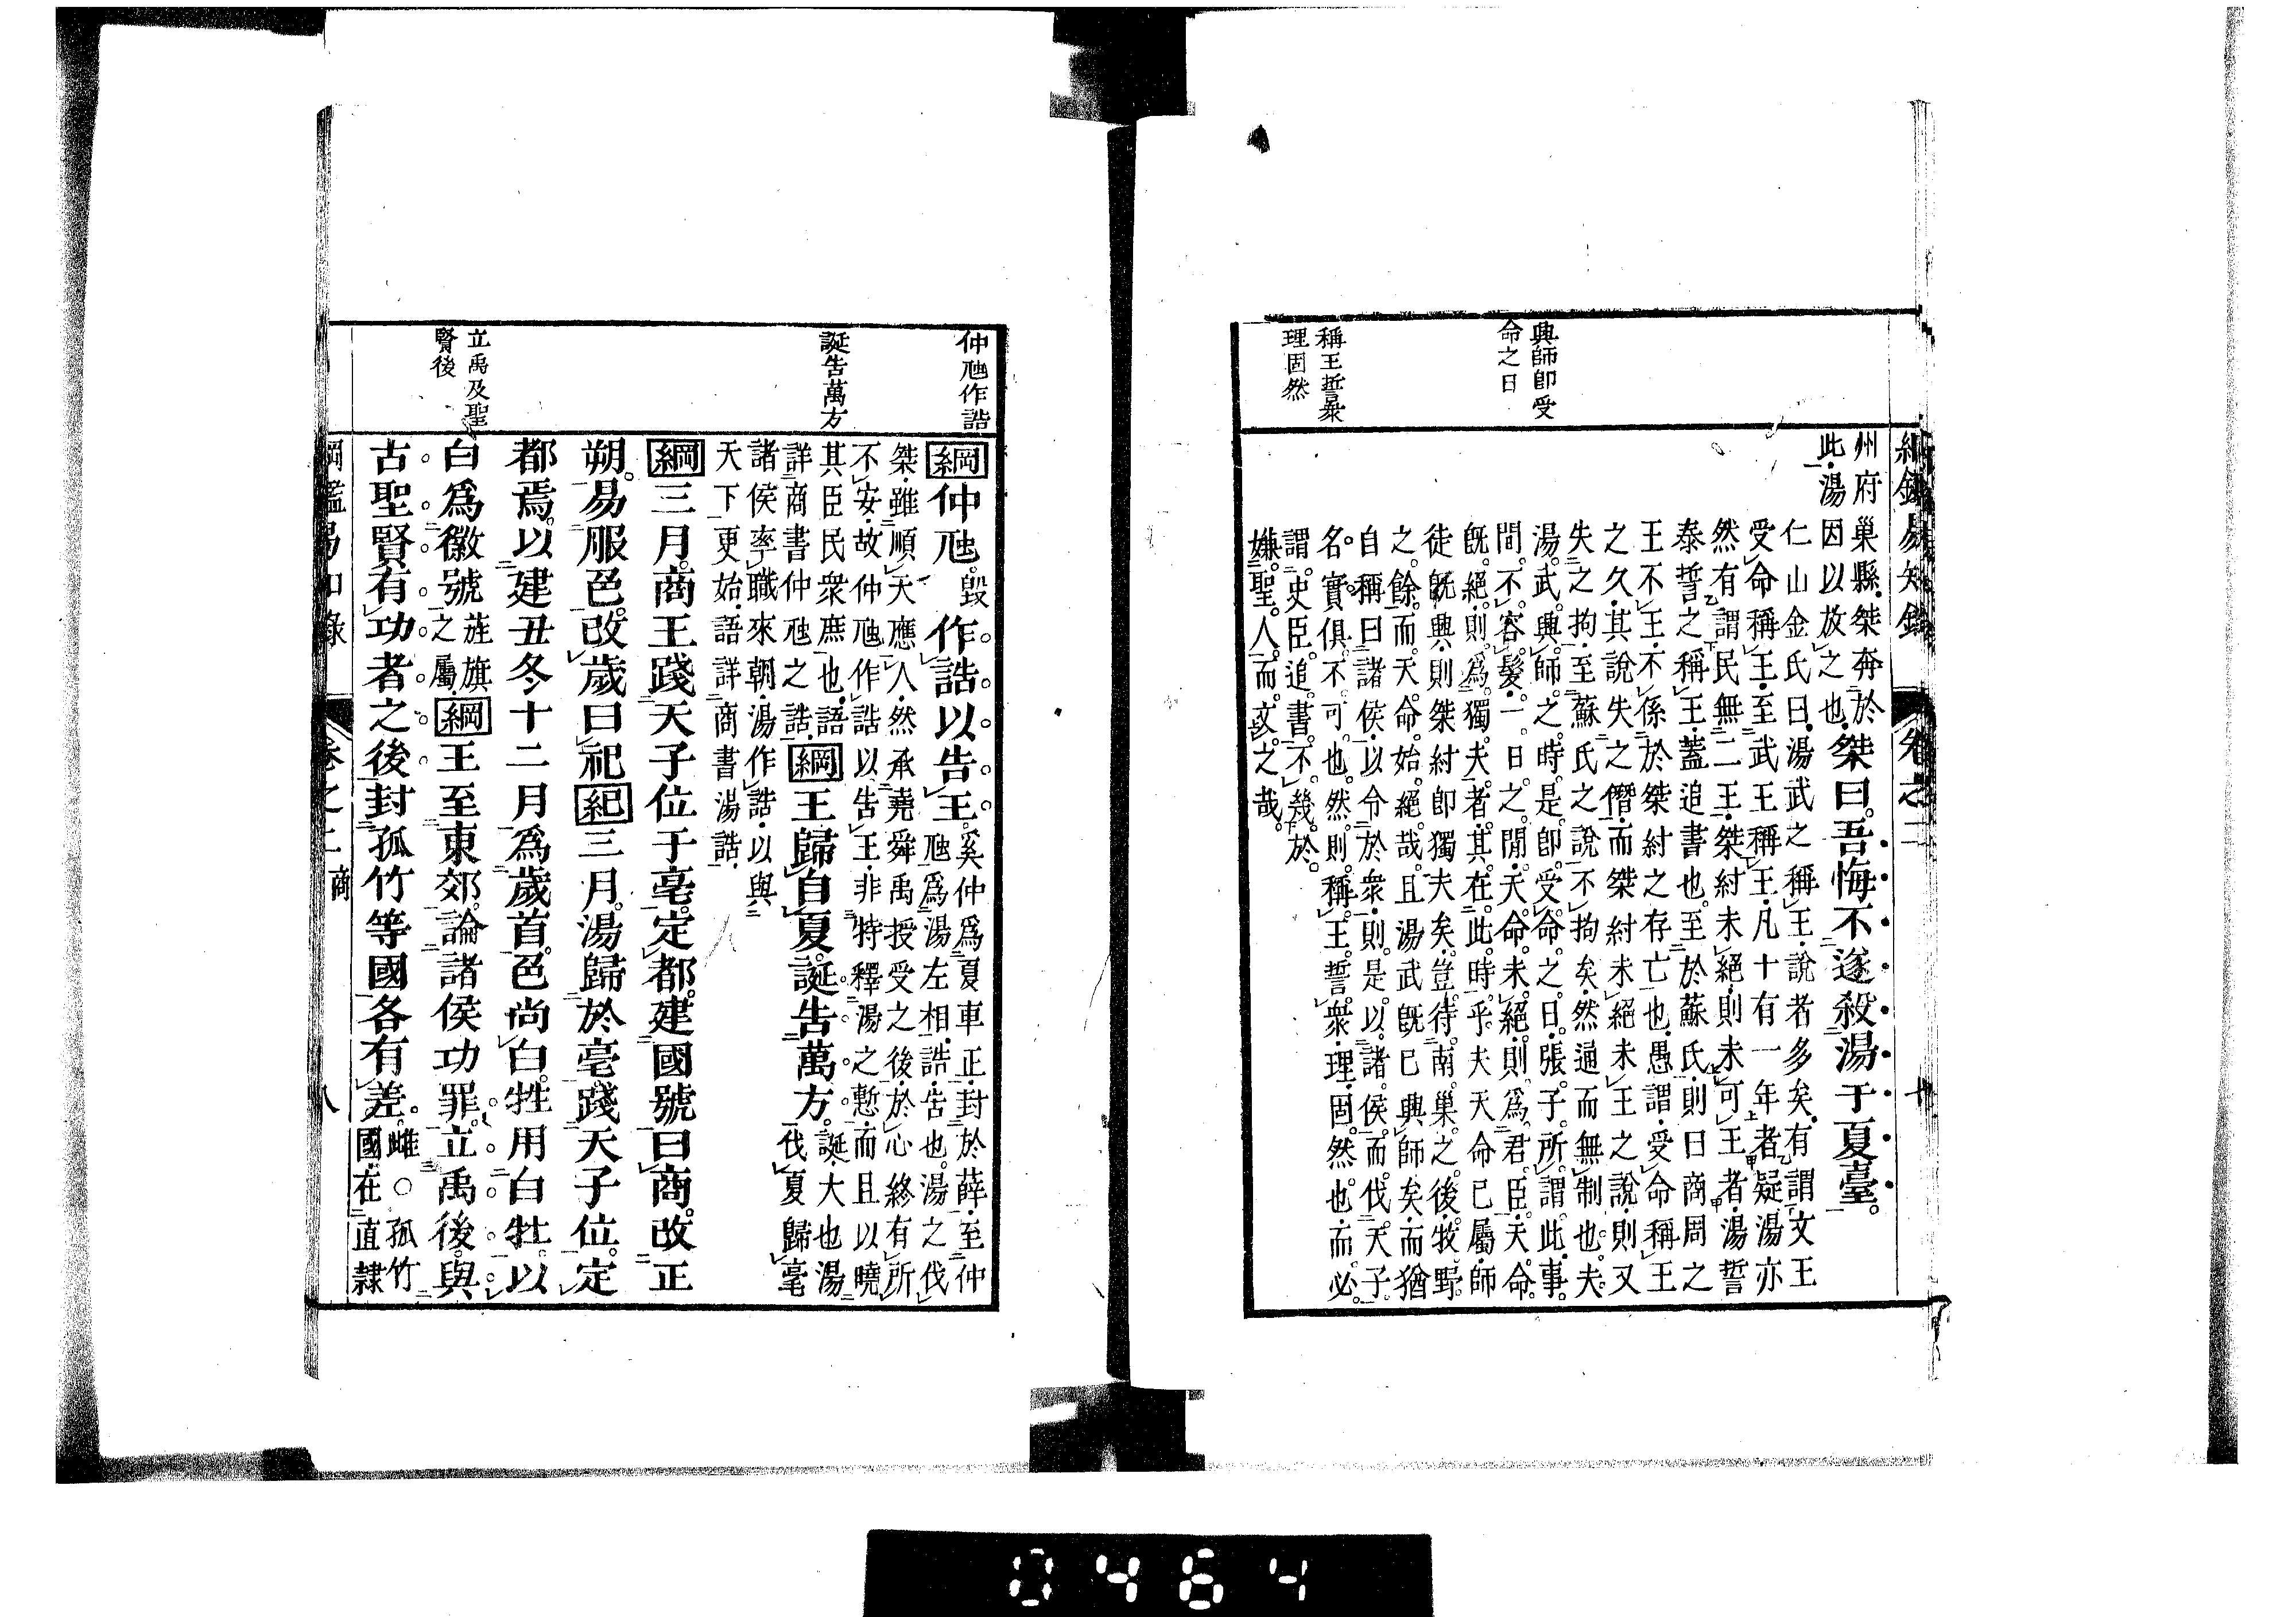 綱鑑易知錄 卷之二 十
興師即受
命之日
稱王誓衆
理固然
州府巢縣桀奔於
此湯因以放之也
桀曰吾悔不遂殺湯于夏臺
仁山金氏曰湯武之稱王說者多矣有謂文王
受命稱王至武王稱王凡十有一年者疑湯亦
然有謂民無二王桀紂未絕則未可王者湯誓
泰誓之稱王蓋追書也至於蘇氏則曰商周之
王不王不係於桀紂之存亡也愚謂受命稱王
之久其說失之僭而桀紂未絕未王之說則又
失之拘至蘇氏之說不拘矣然通而無制也夫
湯武興師之時是即受命之日張子所謂此事
間不容髮一日之閒天命未絕則爲君臣天命
旣絕則爲獨夫者其在此時乎夫天命已屬師
徒旣興則桀紂即獨夫矣豈待南巢之後牧野
之餘而天命始絕哉且湯武旣已興師矣而猶
自稱曰諸侯以令於衆則是以諸侯而伐天子
名實俱不可也然則稱王誓衆理固然也而必
謂史臣追書不幾於
嫌聖人而文之哉
仲虺作誥
誕告萬方
立禹及聖
賢後
綱仲虺毀作誥以告王
奚仲爲夏車正封於薛至仲
虺爲湯左相誥告也湯之伐
桀雖順天應人然承堯舜禹授受之後於心終有所
不安故仲虺作誥以告王非特釋湯之慙而且以曉
其臣民衆庶也語
詳商書仲虺之誥
綱王歸自夏誕告萬方
誕大也湯
伐夏歸亳
諸侯率職來朝湯作誥以與
天下更始語詳商書湯誥
綱三月商王踐天子位于亳定都建國號曰商改正
朔易服色改歲曰祀紀三月湯歸於亳踐天子位定
都焉以建丑冬十二月爲歲首色尚白牲用白牡以
白爲徽號旌旗之屬綱王至東郊論諸侯功罪立禹後與
古聖賢有功者之後封孤竹等國各有差
雌○孤竹
國在直隸
綱鑑易知錄 卷之二 商 八
0464